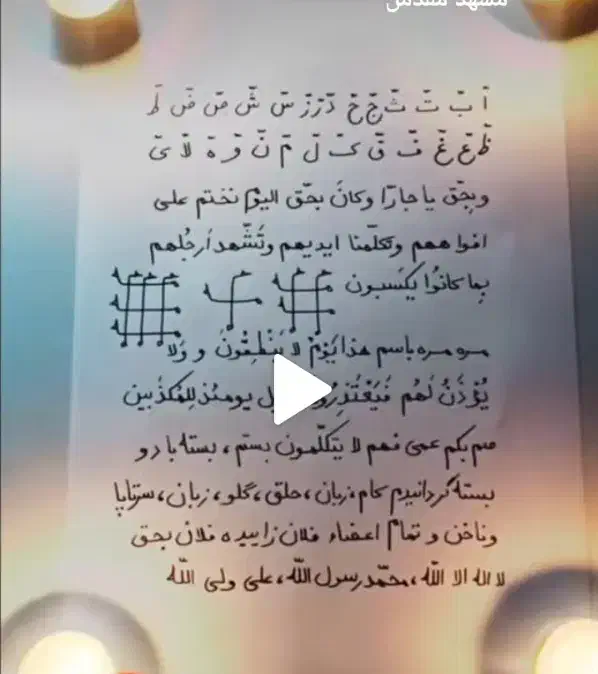 مشهد مقدس
اَ بّ تّ ثّ جّ حّ خّ دّ رّ زّ سّ شّ صّ ضّ طّ
ظّ عّ غّ فّ قّ کّ لّ مّ نّ وّ ةّ لاّ یّ
وبحّق یا جبارًا وکانَ بحّق الیوم نختم علی
افواههم وتکلّمنا ایدیهم وتُشّهد اَرجُلهم
بِما کانوُا یکَسبون
سره سره باسم هذا یَوْمُ لا یَنْطِقُونَ و وَلا
یُؤْذَنُ لَهُم فَیَعْتَذِرُو یل یومئذ للِمُکذَبین
صم بکم عمی فهم لا یتکلّمون بستم، بسته باد و
بسته گردانیدم کام، زبان، حلق، گلو، زبان، سرتاپا
وناخن و تمام اعضاء فلان زاییده فلان بحق
لا اله الا الله، محمّد رسول الله، علی ولی الله